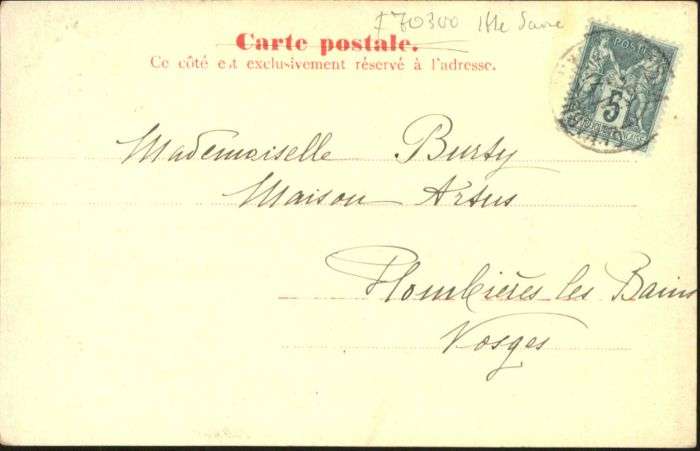 F70300 Hte Saône
Carte postale.
Ce côté est exclusivement réservé à l'adresse.
POSTE
5
Mademoiselle Burty
Maison Artus
Plombières les Bains
Vosges